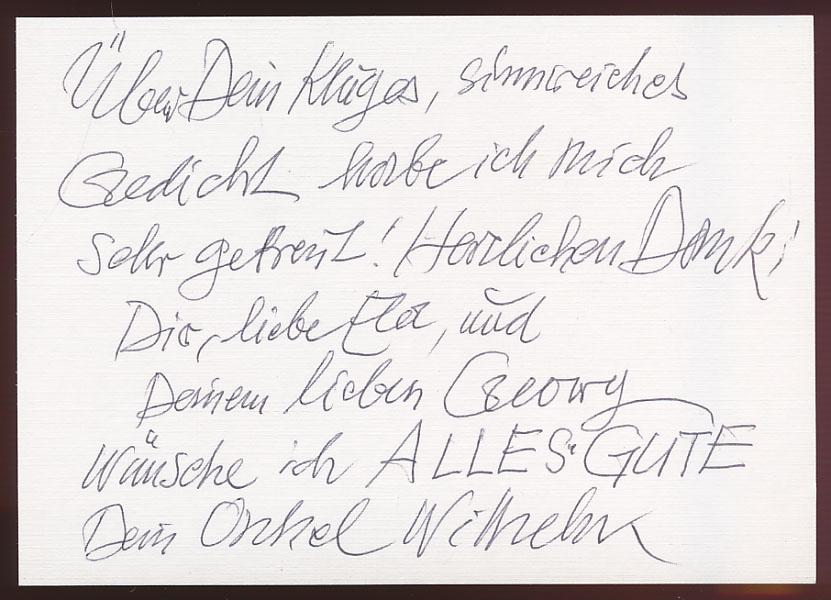 Über Dein kluges, sinnreiches
Gedicht habe ich mich
sehr gefreut! Herzlichen Dank!
Dir, liebe Ela, und
Deinem lieben Georg
wünsche ich ALLES GUTE
Dein Onkel Wilhelm